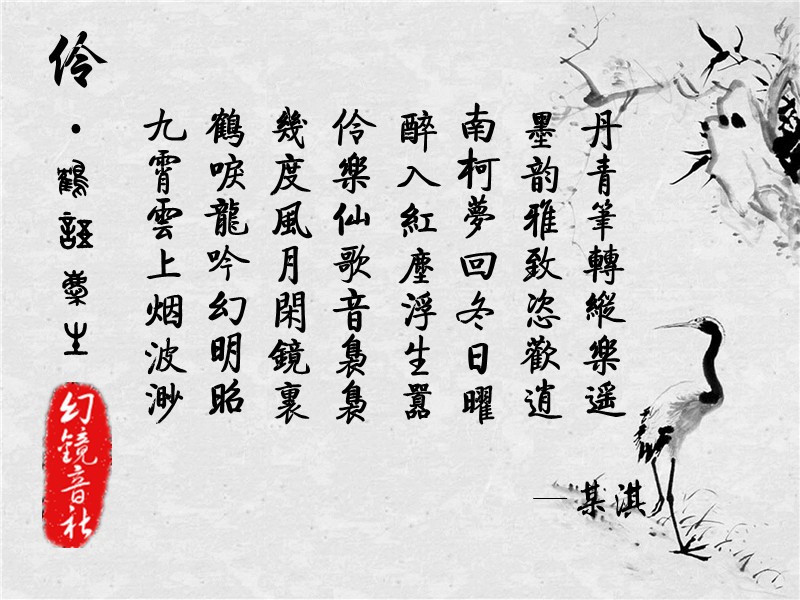 丹青筆轉縱樂遥
墨韵雅致恣歡逍
南柯夢回冬日曜
醉入紅塵浮生囂
伶樂仙歌音裊裊
幾度風月閑鏡裏
鶴唳龍吟幻明昭
九霄雲上烟波渺
—某淇
伶·鶴生
幻鏡音社